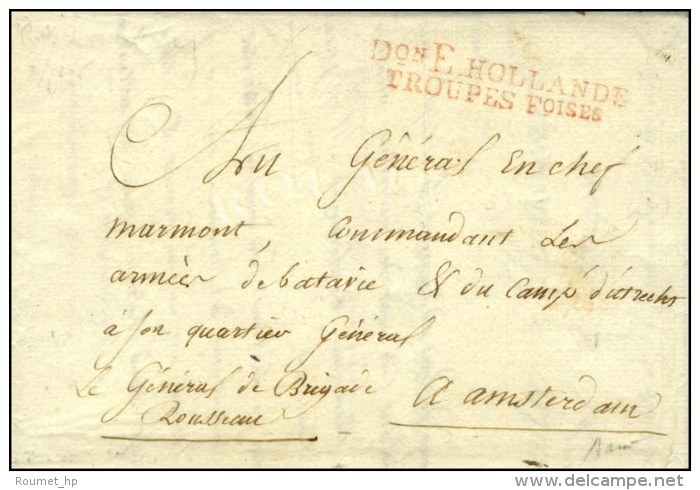 DON E. HOLLANDE
TROUPES FOISES
Au Général En chef
marmont, Commandant Les
armées de batavie & du Camp d'utrecht
à son quartier Général
Le Général de Brigade A amsterdam
Rousseau
Roumet_hp
delcampe.net